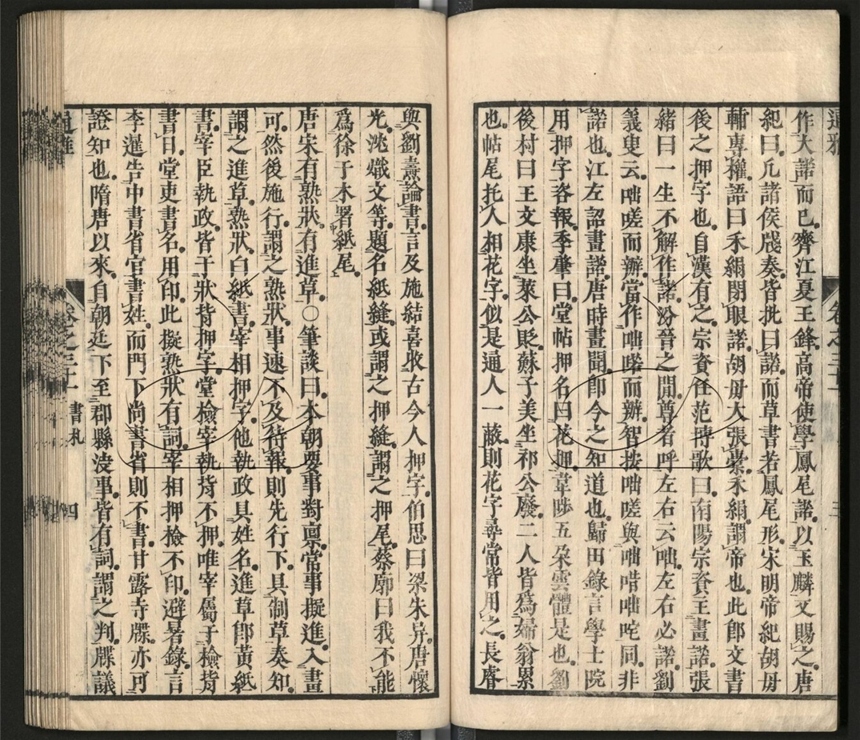 作大諾而已齊江夏王鋒高帝使學鳳尾諾以玉麟又賜之唐
紀曰凡諸侯牋奏皆批曰諾而草書若鳳尾形宋明帝紀胡毋
輔專權語曰禾絹閉眼諾胡毋大張橐禾絹謂帝也此即文書
後之押字也自漢有之宗資任范時歌曰南陽宗資王畫諾張
緒曰一生不解作諾汾晉之間尊者呼左右云咄左右必諾劉
義叟云咄嗟而辦當作咄喏而辦智按咄嗟與咄啫咄咜同非
諾也江左詔畫諾唐時畫聞即今之知道也歸田錄言學士院
用押字咨報季肇曰堂帖押名曰花押韋陟五朵雲體是也劉
後村曰王文康坐萊公貶蘇子美坐祁公廢二人皆爲婦翁累
也帖尾托人相花字似是通人一蔽則花字尋常皆用之長睿
與劉燾論書言及施結喜收古今人押字伯思曰梁朱异唐懷
充沈熾文等題名紙縫或謂之押縫謂之押尾蔡廓曰我不能
爲徐于木署紙尾
唐宋有熟狀有進草○筆談曰本朝要事對稟常事擬進入畫
可然後施行謂之熟狀事速不及待報則先行下具制草奏知
謂之進草熟狀白紙書宰相押字他執政具姓名進草即黃紙
書宰臣執政皆于狀背押字堂檢宰執皆不押唯宰屬于檢背
書日堂吏書名用印此擬熟狀有詞宰相押檢不印避暑錄言
李暹告中書省官書姓而門下尚書省則不書甘露寺牒亦可
證知也隋唐以來自朝廷下至郡縣決事皆有詞謂之判牒議
通雅
卷之三十一
書札
四